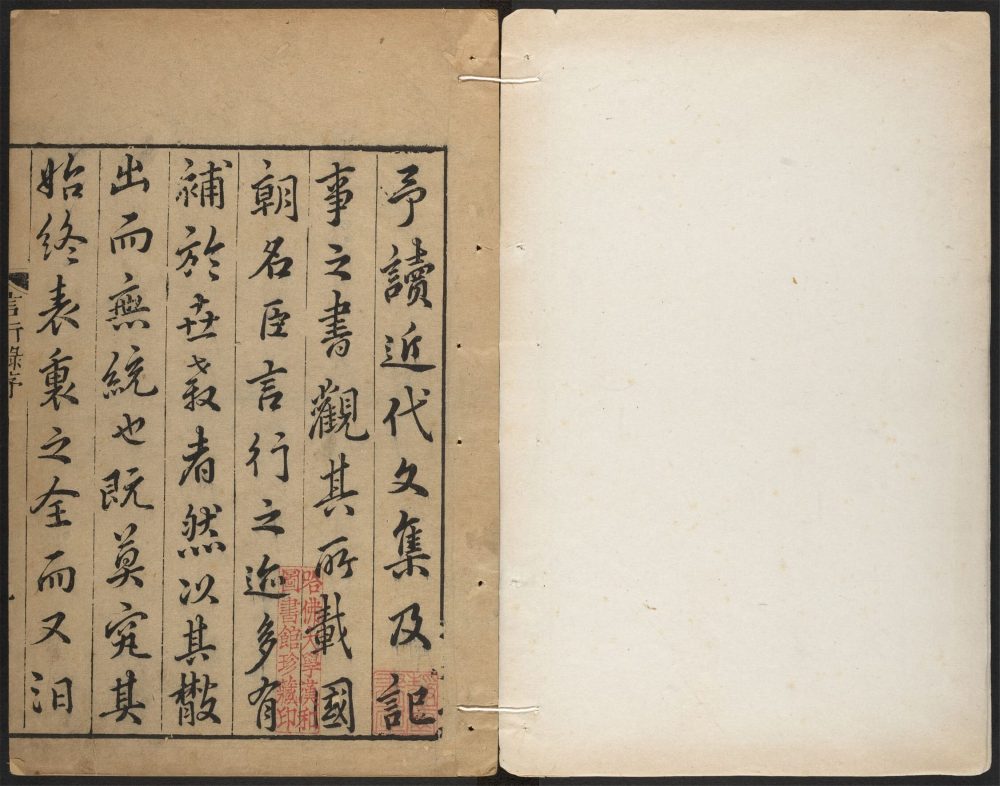 予讀近代文集及記
事之書觀其所載國
朝名臣言行之迹多有
補於世教者然以其散
出而無統也既莫究其
始終表裏之全而又汨
言行錄序
哈佛大學漢和
圖書館珍藏印